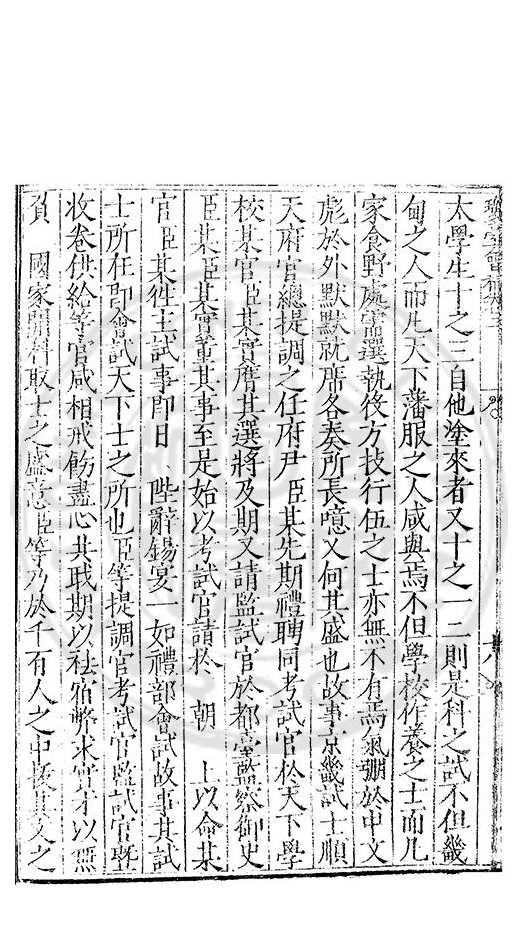 瓊臺會稿卷之
八
太學生十之三自他塗來者又十之一二則是科之試不但畿
甸之人而凡天下藩服之人咸與焉不但學校作養之士而凡
家食野處需選執役方技行伍之士亦無不有焉氣弸於中文
彪於外默默就席各奏所長噫又何其盛也故事京畿試士順
天府官總提調之任府尹臣某先期禮聘同考試官於天下學
校某官臣某實膺其選將及期又請監試官於都臺監察御史
臣某臣某實董其事至是始以考試官請於 朝 上以命某
官臣某徃主試事即日 陛辭錫宴一如禮部會試故事其試
士所在即會試天下士之所也臣等提調官考試官監試官曁
收卷供給等官咸相戒飭盡心其職期以祛宿弊求實才以無
負 國家開科取士之盛意臣等乃於千有人之中拔其文之